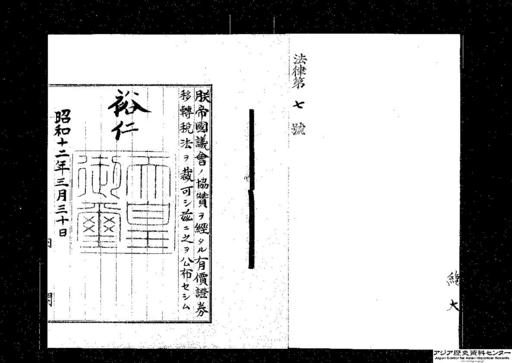 法律第七號
朕帝國議會ノ協贊ヲ經タル有價證券
移轉稅法ヲ裁可シ茲ニ之ヲ公布セシム
裕仁
天皇御璽
昭和十二年三月三十日
總
大
アジア歴史資料センター
Japan Center for Asian Historical Records